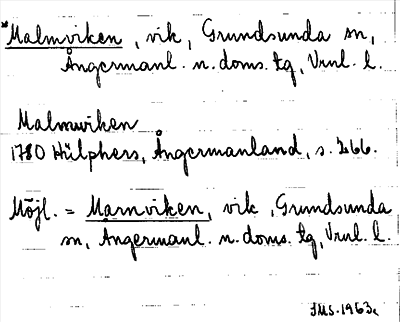 *Malmviken, vik, Grundsunda sn,
Ångermanl. n. doms. tg, Vnl. l.
Malmwiken
1780 Hülphers, Ångermanland, s. 266.
Möjl. = Marnviken, vik, Grundsunda
sn, Ångermanl. n. doms. tg, Vnl. l.
IMS. 1963.